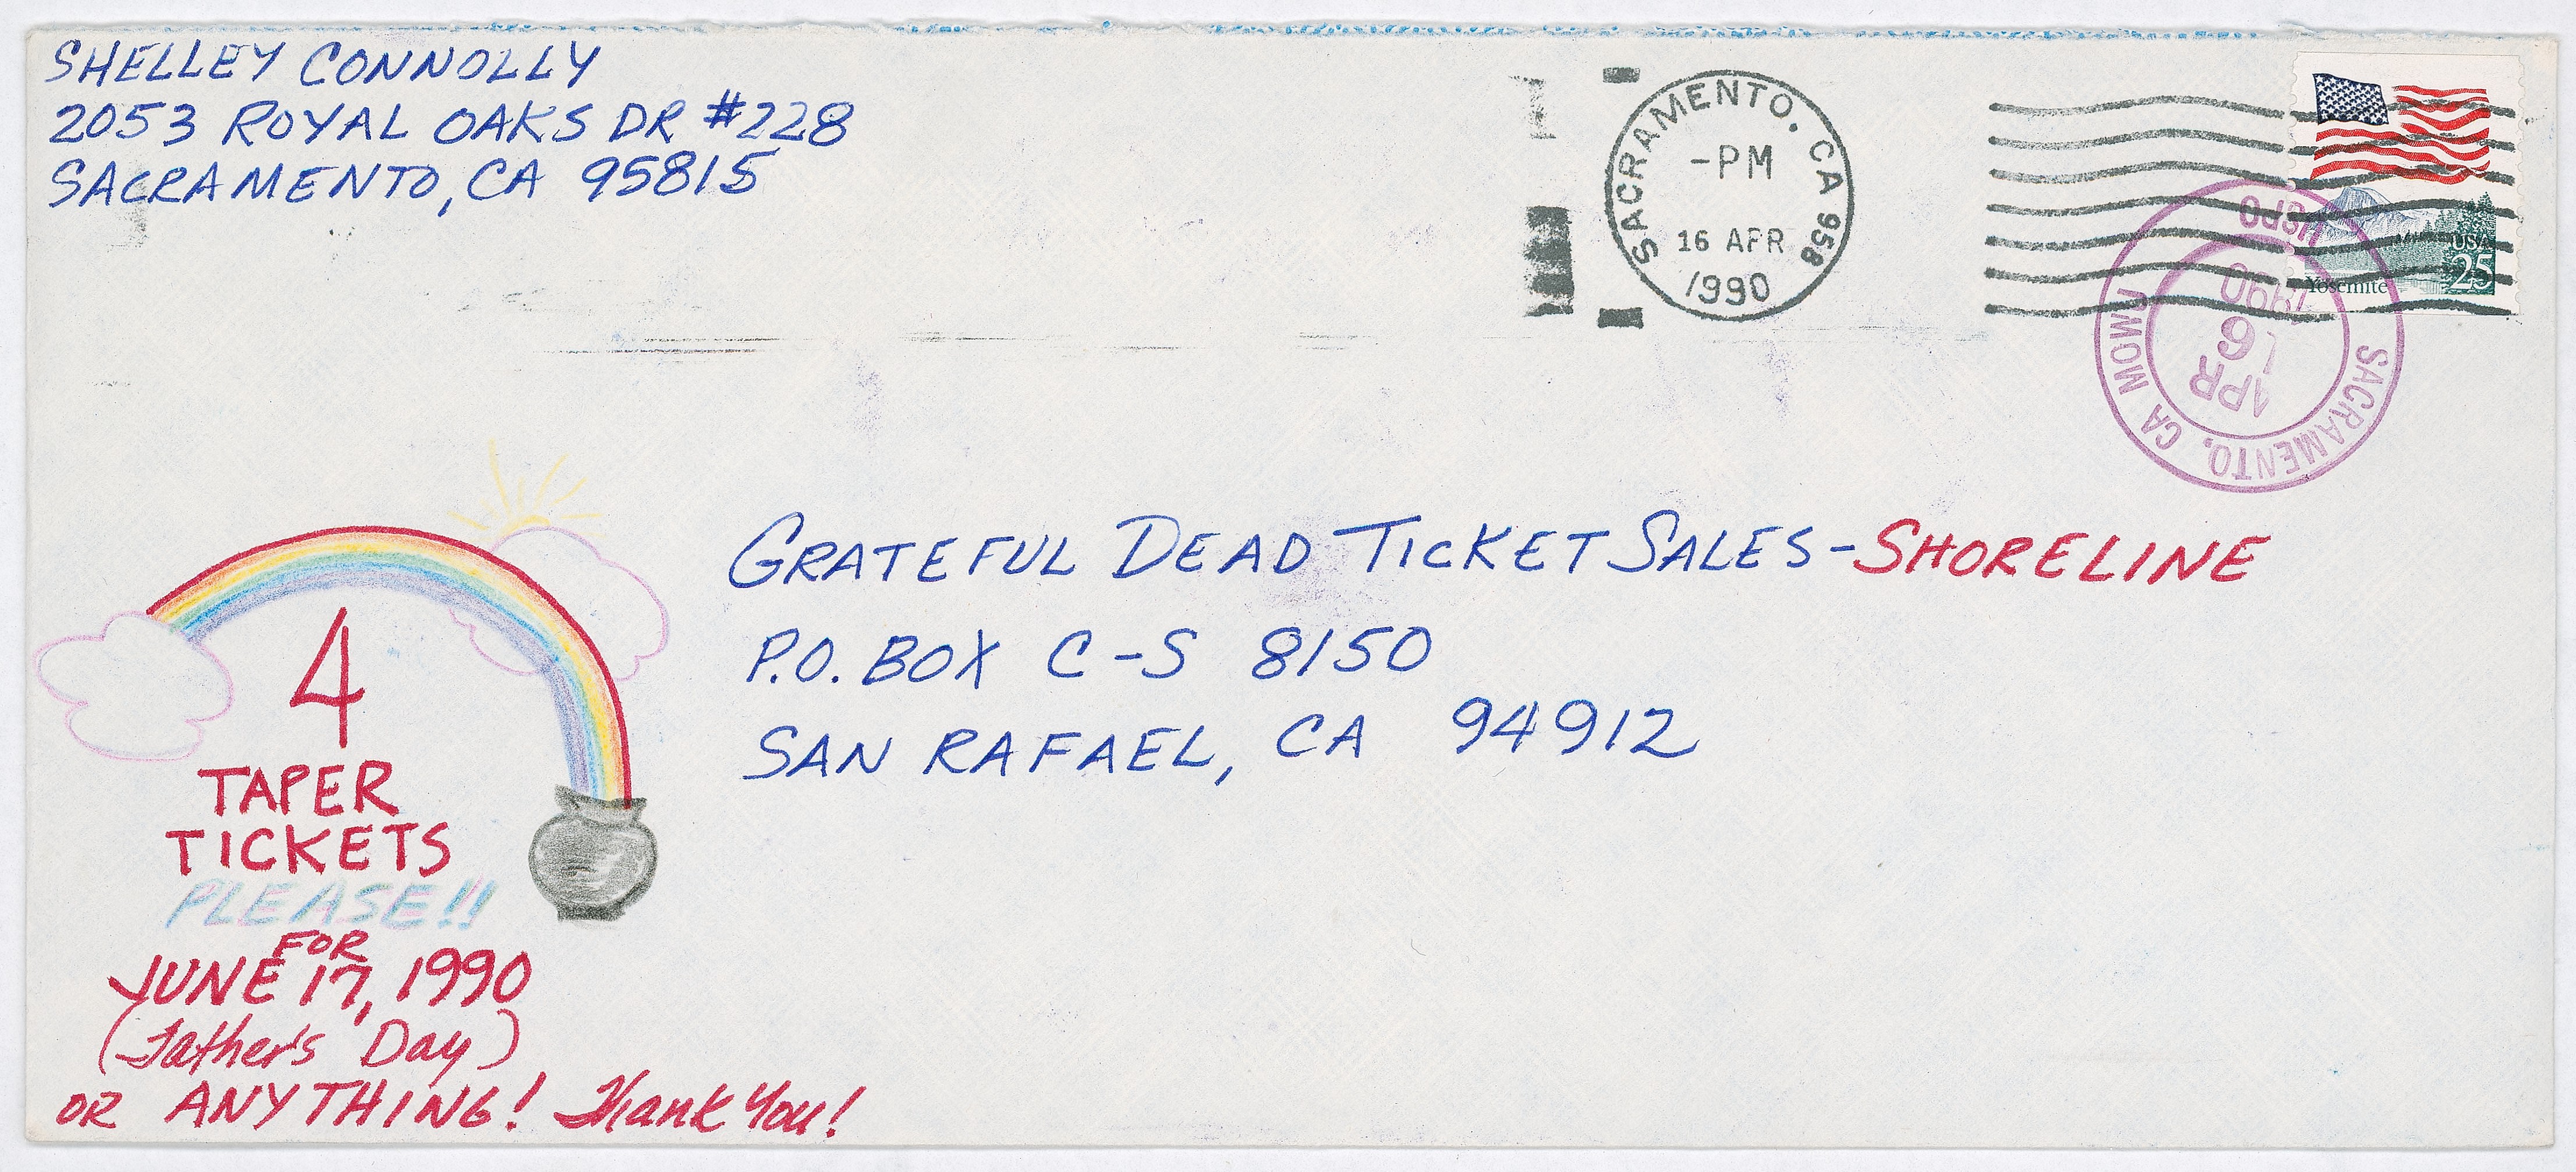 SHELLEY CONNOLLY
2053 ROYAL OAKS DR #228
SACRAMENTO, CA 95815
SACRAMENTO, CA 958
-PM
16 APR
1990
USA
25
Yosemite
SACRAMENTO, CA MOWU
USPO
APR
16
1990
GRATEFUL DEAD TICKET SALES-SHORELINE
P.O. BOX C-S 8150
SAN RAFAEL, CA 94912
4
TAPER
TICKETS
PLEASE!!
FOR
JUNE 17, 1990
(Father's Day)
OR ANYTHING! Thank You!